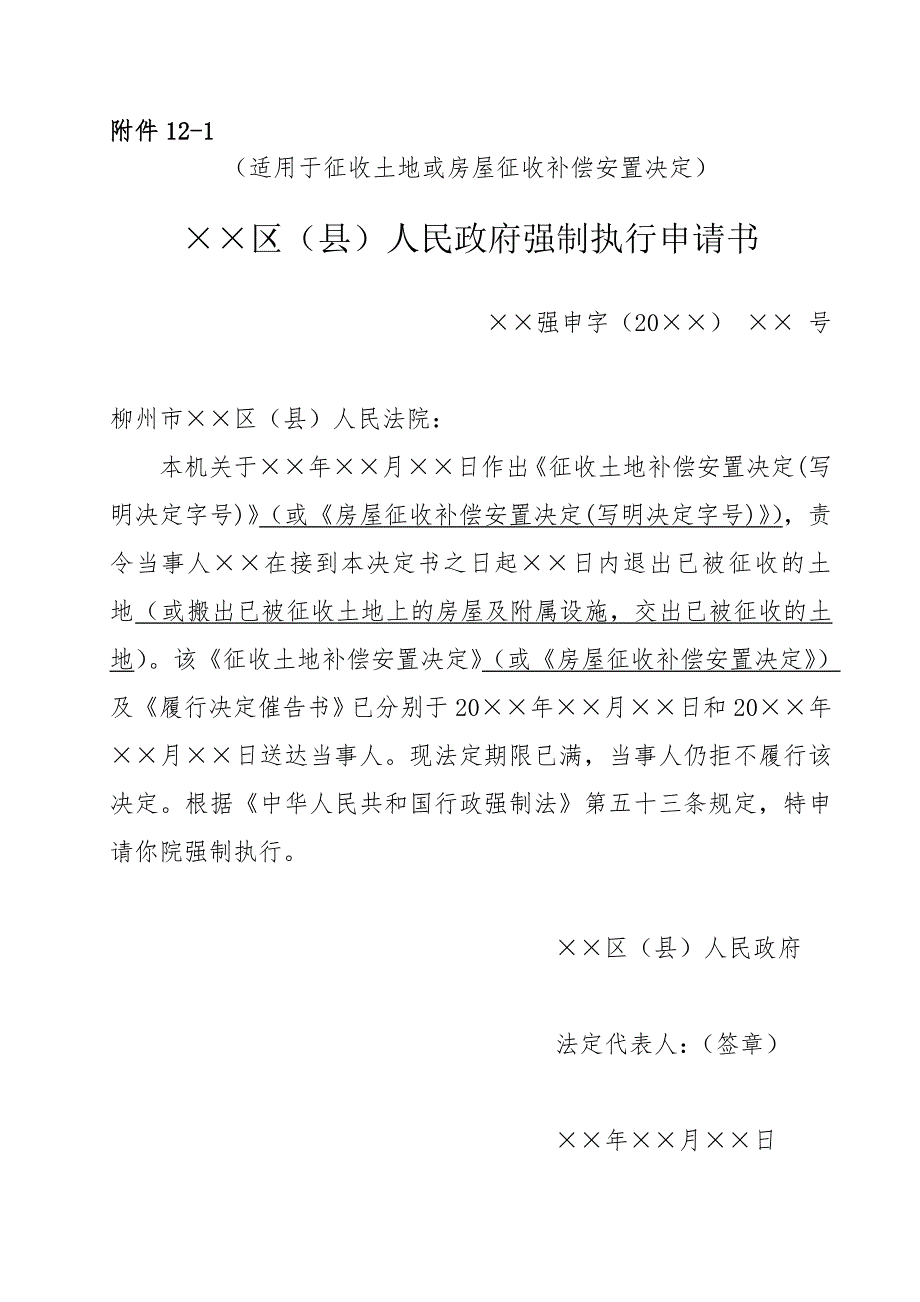 附件 12-1
（适用于征收土地或房屋征收补偿安置决定）
××区（县）人民政府强制执行申请书
××强申字（20××） ×× 号
柳州市××区（县）人民法院：
本机关于××年××月××日作出《征收土地补偿安置决定(写
明决定字号)》（或《房屋征收补偿安置决定(写明决定字号)》），责
令当事人××在接到本决定书之日起××日内退出已被征收的土
地（或搬出已被征收土地上的房屋及附属设施，交出已被征收的土
地）。该《征收土地补偿安置决定》（或《房屋征收补偿安置决定》）
及《履行决定催告书》已分别于 20××年××月××日和 20××年
××月××日送达当事人。现法定期限已满，当事人仍拒不履行该
决定。根据《中华人民共和国行政强制法》第五十三条规定，特申
请你院强制执行。
××区（县）人民政府
法定代表人：（签章）
××年××月××日